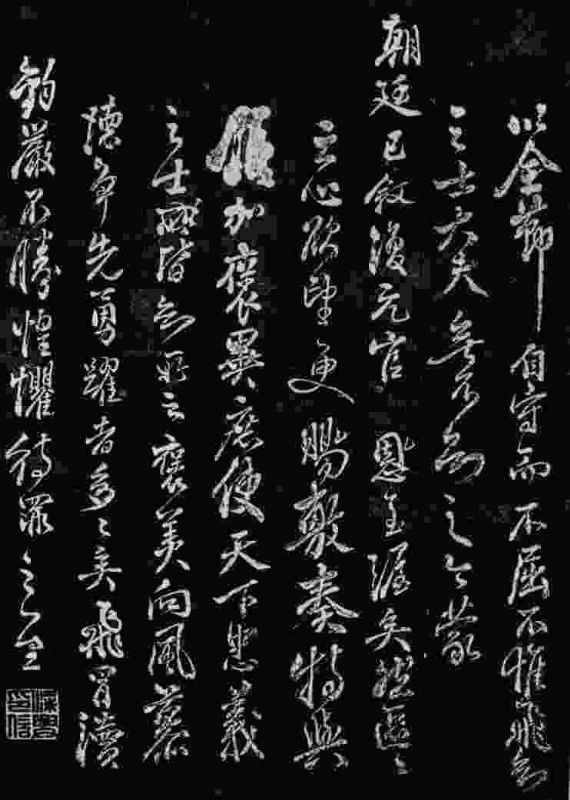 以全節自守而不屈不惟飛知
之士大夫無不知之今蒙
朝廷已叙復元官恩至渥矣然區々
之心欲望更賜敷奏特與
加褒異庶使天下忠義
之士咸皆知褒美向風慕
德爭先勇躍者多々矣飛冒瀆
鈞嚴不勝惶懼待罪之至